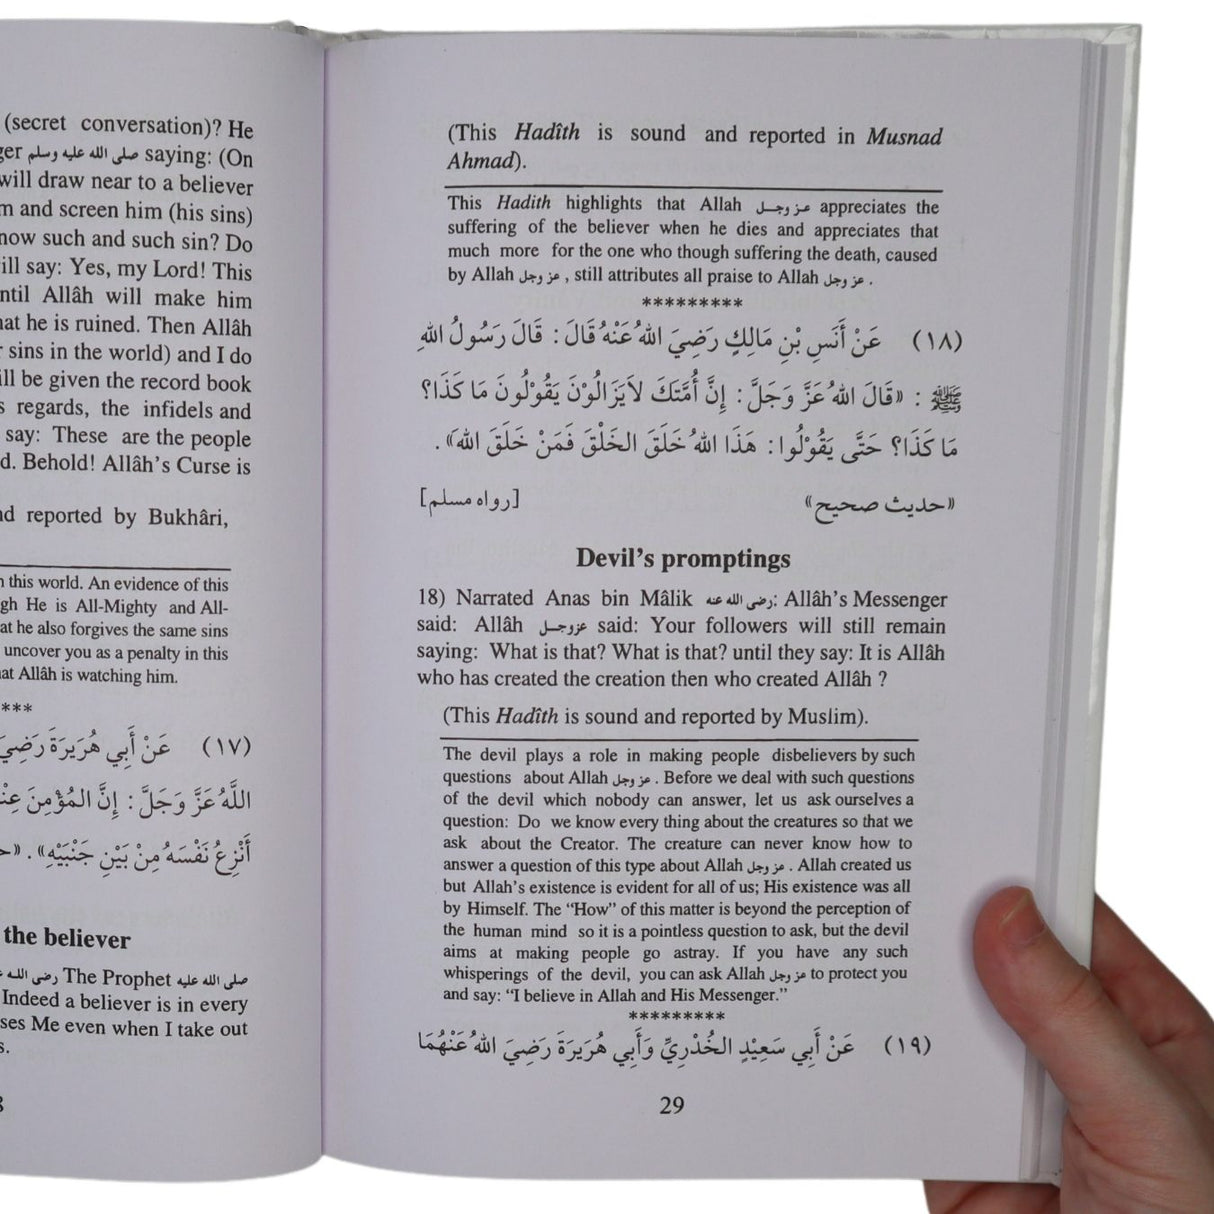 (secret conversation)? He
صلى الله عليه وسلم saying: (On
will draw near to a believer
and screen him (his sins)
such and such sin? Do
say: Yes, my Lord! This
Allâh will make him
that he is ruined. Then Allâh
sins in the world) and I do
be given the record book
regards, the infidels and
say: These are the people
Behold! Allâh's Curse is
reported by Bukhâri,
this world. An evidence of this
He is All-Mighty and All-
he also forgives the same sins
uncover you as a penalty in this
Allâh is watching him.
***
(١٧) عَنْ أَبِي هُرَيرَةَ رَضِيَ
اللَّهُ عَزَّ وَجَلَّ : إِنَّ المُؤْمِنَ
أَنْزِعُ نَفْسَهُ مِنْ بَيْنِ جَنْبَيْهِ» .
the believer
رضي الله The Prophet صلى الله عليه
Indeed a believer is in every
Me even when I take out
(This Hadîth is sound and reported in Musnad
Ahmad).
This Hadith highlights that Allah عز وجل appreciates the
suffering of the believer when he dies and appreciates that
much more for the one who though suffering the death, caused
by Allah عز وجل , still attributes all praise to Allah عز وجل .
*********
(١٨) عَنْ أَنَسِ بْنِ مَالِكٍ رَضِيَ اللهُ عَنْهُ قَالَ : قَالَ رَسُولُ اللهِ
ﷺ : «قَالَ اللهُ عَزَّ وَجَلَّ : إِنَّ أُمَّتَكَ لاَيَزَالُوْنَ يَقُوْلُونَ مَا كَذَا؟
مَا كَذَا؟ حَتَّى يَقُوْلُوا : هَذَا اللهُ خَلَقَ الخَلْقَ فَمَنْ خَلَقَ اللهَ» .
«حديث صحيح» [رواه مسلم]
Devil's promptings
18) Narrated Anas bin Mâlik رضي الله عنه: Allâh's Messenger
said: Allâh عز وجل said: Your followers will still remain
saying: What is that? What is that? until they say: It is Allâh
who has created the creation then who created Allâh ?
(This Hadîth is sound and reported by Muslim).
The devil plays a role in making people disbelievers by such
questions about Allah عز وجل . Before we deal with such questions
of the devil which nobody can answer, let us ask ourselves a
question: Do we know every thing about the creatures so that we
ask about the Creator. The creature can never know how to
answer a question of this type about Allah عز وجل . Allah created us
but Allah's existence is evident for all of us; His existence was all
by Himself. The “How” of this matter is beyond the perception of
the human mind so it is a pointless question to ask, but the devil
aims at making people go astray. If you have any such
whisperings of the devil, you can ask Allah عز وجل to protect you
and say: “I believe in Allah and His Messenger.”
*********
(١٩) عَنْ أَبِي سَعِيْدٍ الخُدْرِيِّ وَأَبِي هُرَيرَةَ رَضِيَ اللهُ عَنْهُمَا
29